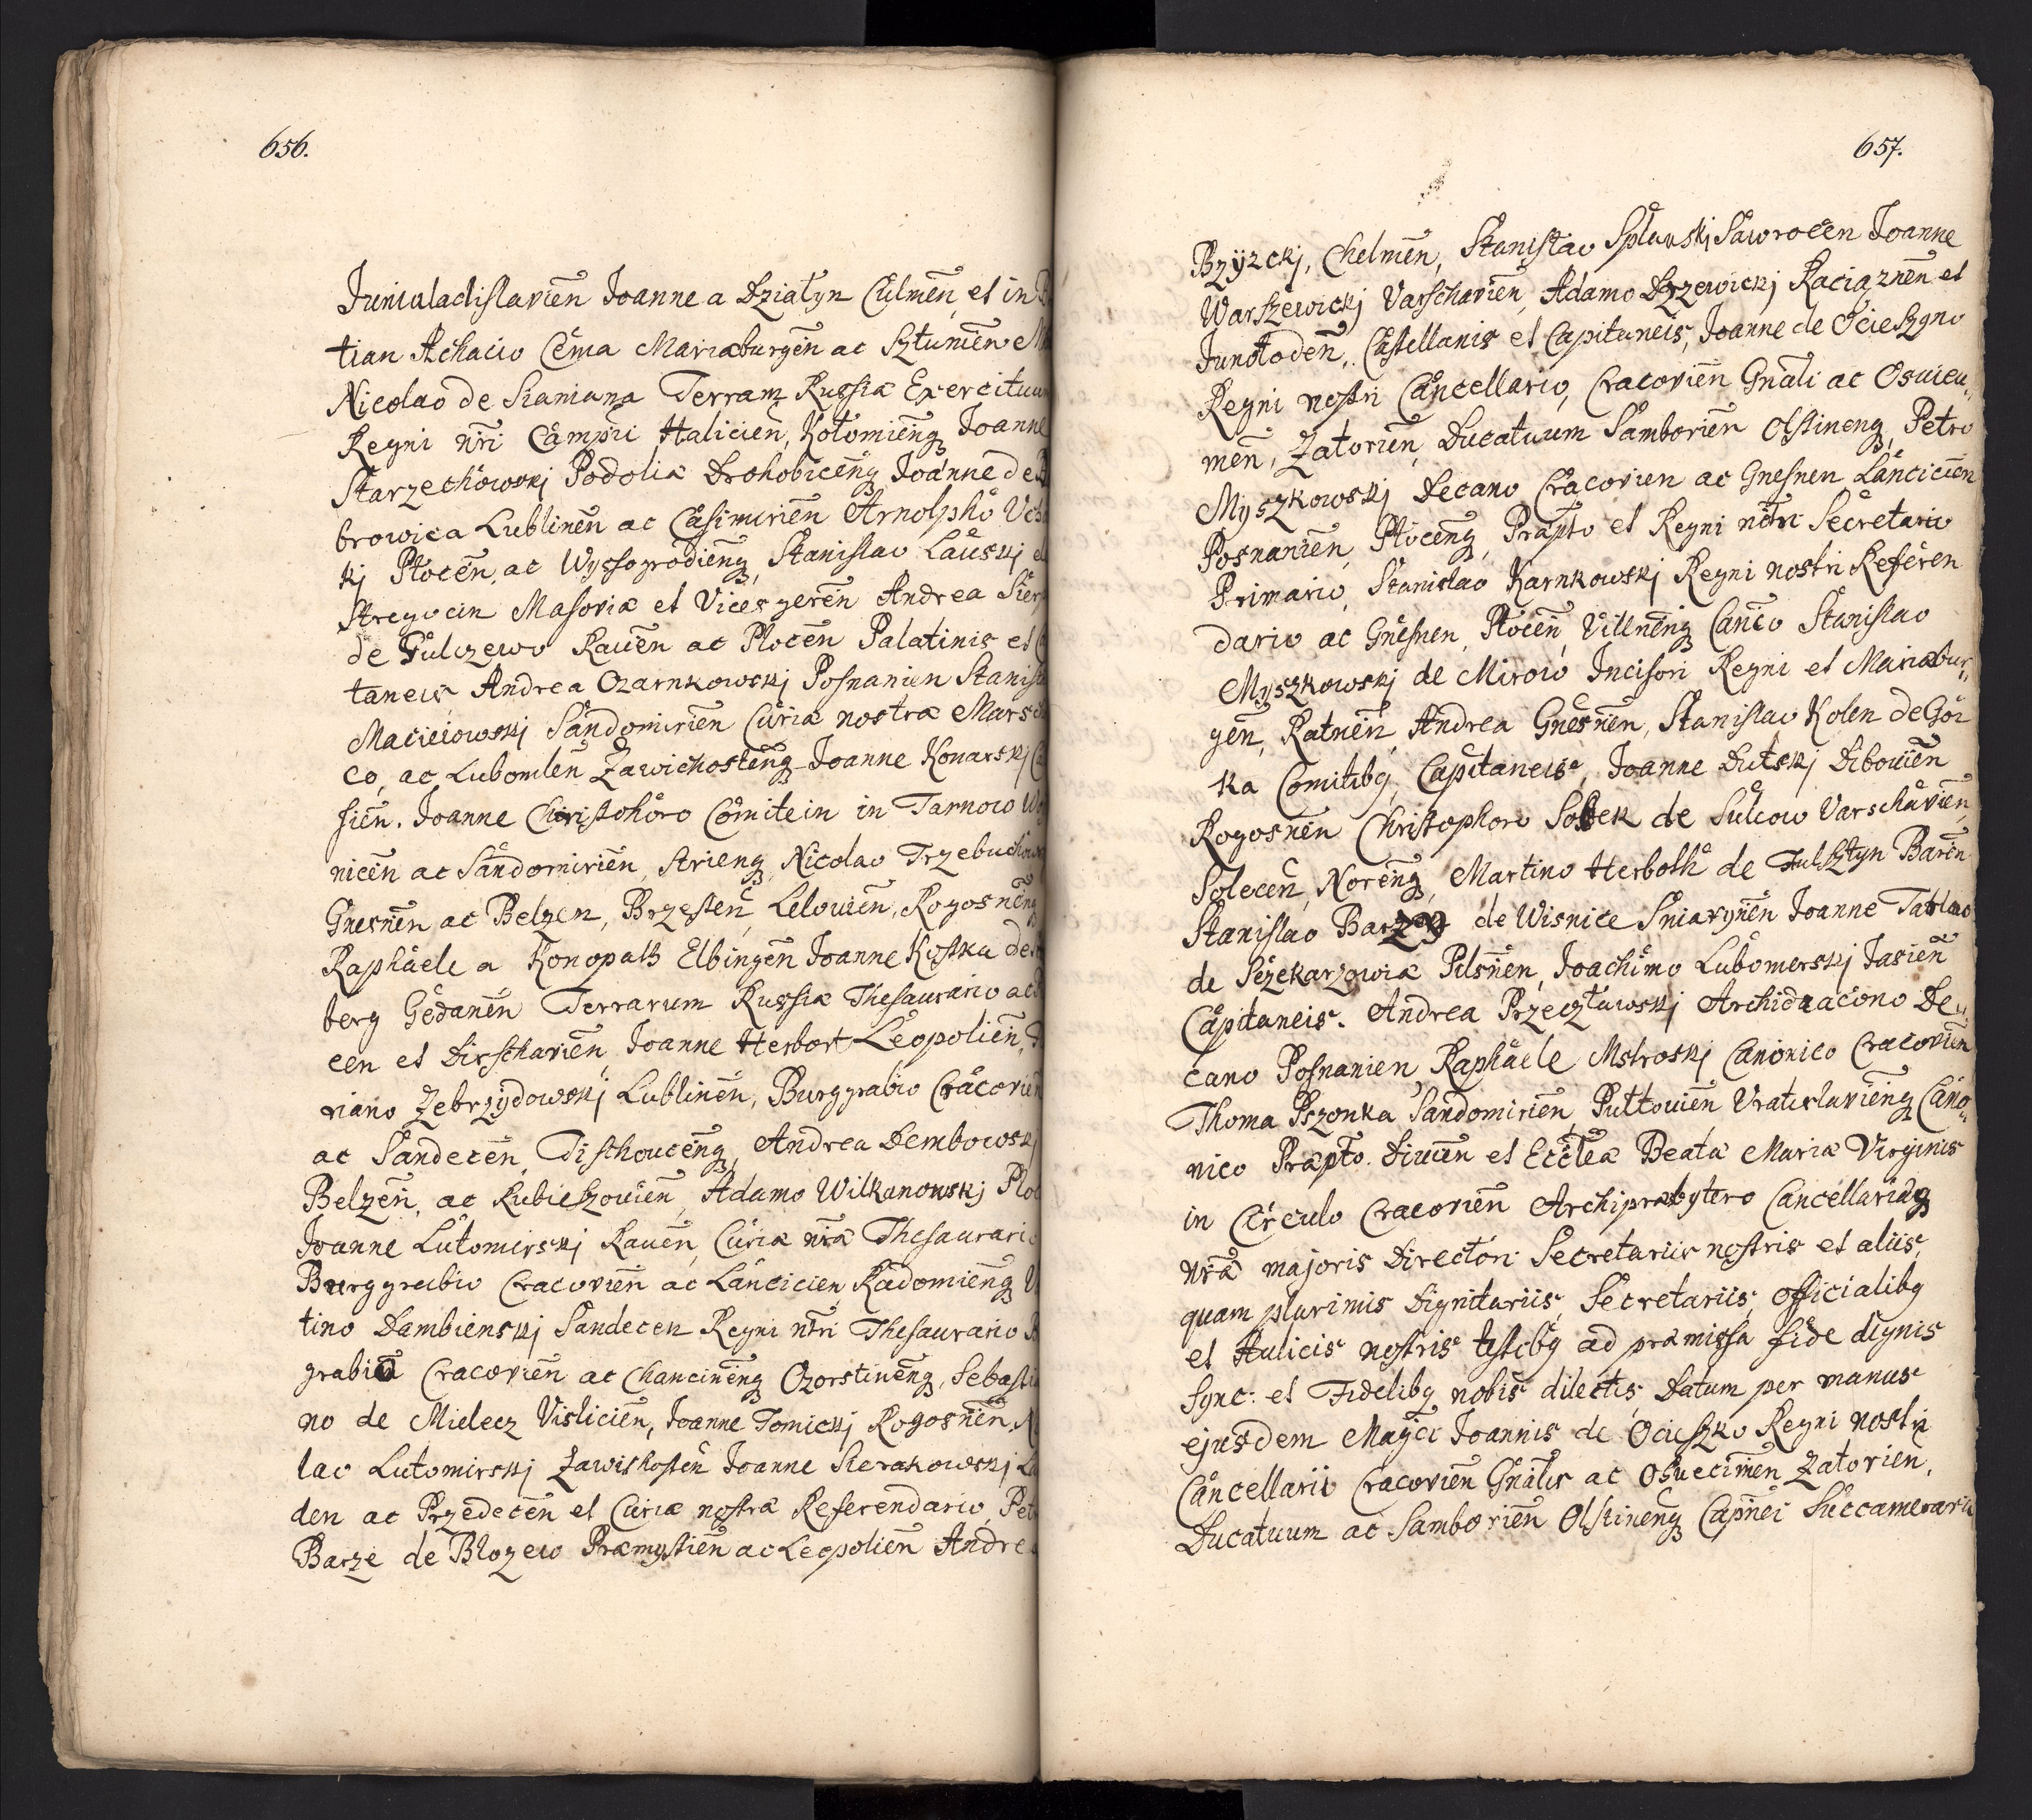 656.
Juniuladislavien̄ Joanne a Dziatyn Culmen̄, et in
tian Achacio Cema Mariæburgen̄ ac Sztumien̄
Nicolao de Sianiana Terram Russiæ Exercituum
Regni nr̄i Campri Halicien̄, Kotomieng̨ Joanne
Starzechowskj Podoliæ Drohobiceng̨ Joanne de
browica Lublinen̄ ac Casimirien̄ Arnolpho
kj Plocen̄, ac Wyssogrodieng̨, Stanislao Lauskj
Stregocin Masoviæ et Vicesgeren̄ Andrea
de Gulczewo Rauen̄ ac Plocen̄ Palatinis et
taneis, Andrea Czarnkowskj Posnanien Stanis
Macieiowskj Sandomirien̄ Curiæ nostræ
co, ac Lubomlen̄ Zawichosteng̨ Joanne Konarskj
sien̄. Joanne Christohoro Comite in in Tarnow
nicen̄ ac Sandomirien̄, Strieng̨, Nicolao Trzebuchow
Gnesnen̄ ac Belzen, Brzesten̄, Lelouien̄, Rogosneng̨
Raphaele a Konopath Elbingen̄ Joanne Kostka de
berg Gedanen̄ Terrarum Russiæ Thesaurario ac
cen et Dirschavien̄, Joanne Herbort Leopolien̄,
riano Zebrzydowskj Lublinen̄, Burggrabio Cracovien̄
ac Sandecen̄, Tisthouceng̨, Andrea Dembowskj
Belzen̄, ac Rubieszouien̄, Adamo Wilkanowskj
Joanne Lutomirskj Rauen̄, Curiæ nr̄æ Thesaurario
Burggrabio Cracovien̄ ac Lancicien, Radomieng̨
tino Dambienskj Sandecen Regni nr̄i Thesaurario
grabio Cracovien̄ ac Chancineng̨ Ozorstineng̨, Sebastia
no de Mielecz Vislicien̄, Joanne Tomickj Rogosnen̄,
lao Lutomirskj Zawishosten̄ Joanne Sierakowskj
den ac Przedecen̄ et Curiæ nostræ Referendario,
Barze de Blozew Præmyslien̄ ac Leopolien̄ Andrea
657.
Bzyzckj, Chelmen̄, Stanislao Splauskj Sawrocen Joanne
Warszewickj Varschavien̄, Adamo Dzzewickj Raciąznen̄ et
Junotoden̄, Castellanis et Capitaneis, Joanne de Ocieszyno
Regni nostri Cancellario, Cracovien̄ Gn̄ali ac Osuieu„
men̄, Zatorien̄, Ducatuum Samborien̄ Olstineng̨, Petro
Myszkowskj Decano Cracovien ac Gnesnen Lancicien̄
Posnanien̄, Ploceng̨, Præpto et Regni nr̄i Secretario
Primario, Stanislao Karnkowskj Regni nostri Referen
dario ac Gnesnen, Plocen̄, Villneng̨ Canco Stanislao
Myszkowskj de Mirow Incisori Regni et Mariæbur„
gen̄, Ratnen̄, Andrea Gnesnen, Stanislao Kolen de Gor
ka Comitibg, Capitaneis, Joanne Dutskj Dibouien̄
Rogosnen̄ Christophoro Sobek de Sulcow Varschavien̄,
Solecen̄, Noreng̨, Martino Herboth de Fulsztyn Baren̄
Stanislao Barzey de Wisnice Sniatynen̄ Joanne Tablao
de Pezekarzowiæ Pilsnen̄, Joachimo Lubomerskj Jasien̄
Capitaneis. Andrea Przeczlawskj Archidiacono De„
cano Posnanien, Raphaele Mstroskj Canonico Cracovien̄
Thoma Pszonka Sandomirien̄, Puttouien̄ Vratislavieng̨ Cano„
nico Præpto. Diuien̄ et Ecclæ Beatæ Mariæ Virginis
in Circulo Cracovien̄ Archipræbytero Cancellariæg̨
nr̄æ majoris Directori Secretariis nostris et aliis,
quam plurimis Dignitariis, Secretariis, Officialibg
et Aulicis nostris testibg ad præmissa fide dignis
sync: et Fidelibg nobis dilectis, Datum per manus
ejusdem Magci Joannis de Ocieszko Regni nostri
Cancellarii Cracovien̄ Gn̄alis ac Osuecimen̄ Zatorien̄,
Ducatuum ac Samborien̄ Olstineng̨ Capnei Succamerario